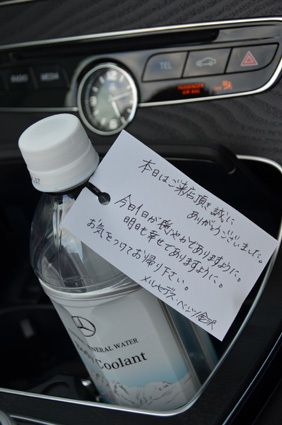 RADIO
MEDIA
TEL
PASSENGER
AIR BAG
本日はご来店頂き誠に
ありがとうございました。
今日1日が輝やいてありますように。
明日も幸せでありますように。
お気をつけてお帰り下さい。
メルセデス・ベンツ金沢
MINERAL WATER
Coolant